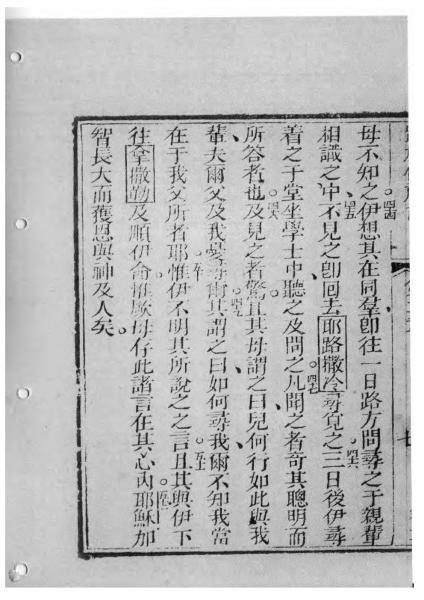 母不知之伊想其在同羣卽往一日路方問尋之于親輩
相識之中不見之卽囘去耶路撒冷尋覓之三日後伊尋
着之于堂坐學士中聽之及問之凡聞之者奇其聰明而
所答者也及見之者驚且其母謂之曰兒何行如此與我
輩夫爾父及我憂尋爾其謂之曰如何尋我爾不知我當
在于我父所者耶惟伊不明其所說之之言且其與伊下
往拿撒勒及順伊命惟厥母存此諸言在其心內耶穌加
智長大而獲恩與神及人矣